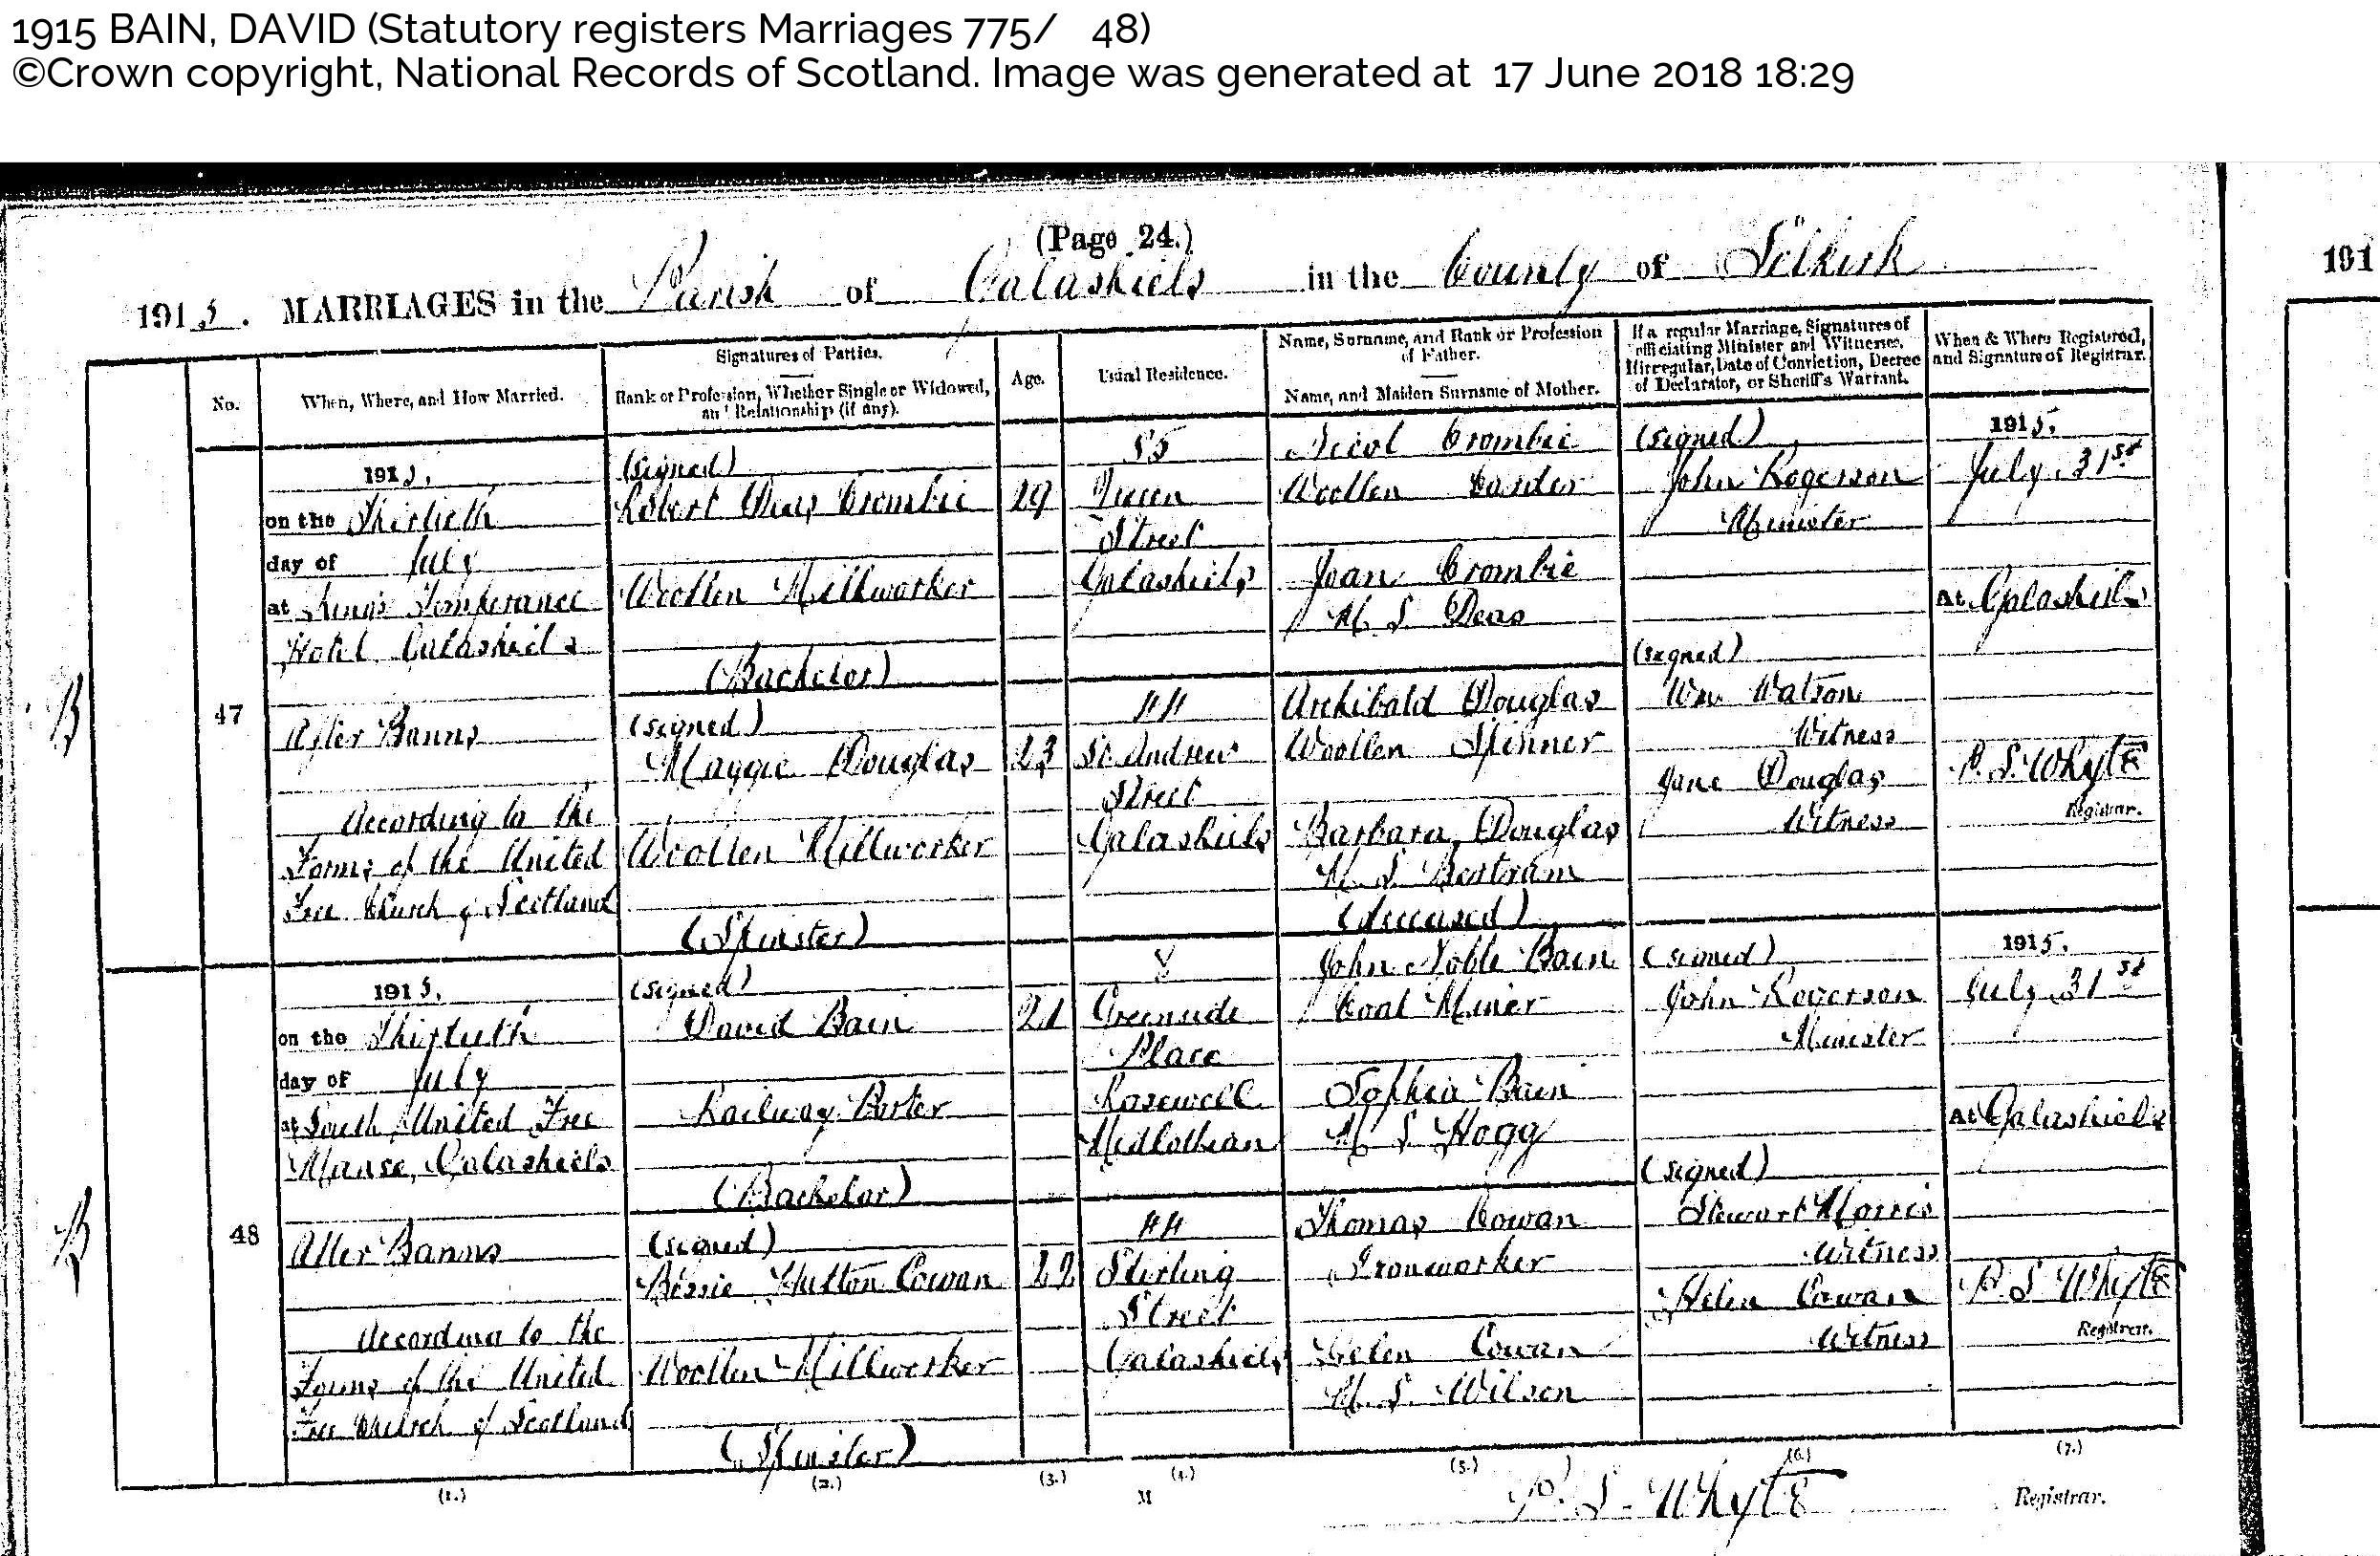 1915 BAIN, DAVID (Statutory registers Marriages 775/ 48)
©Crown copyright, National Records of Scotland. Image was generated at 17 June 2018 18:29
(Page 24.)
1915. MARRIAGES in the Parish of Galashiels in the County of Selkirk
191
No.
When, Where, and How Married.
Signatures of Parties.
Rank or Profession, Whether Single or Widowed, and Relationship (if any).
Age.
Usual Residence.
Name, Surname, and Rank or Profession of Father.
Name, and Maiden Surname of Mother.
If a regular Marriage, Signatures of officiating Minister and Witnesses. If irregular, Date of Conviction, Decree of Declarator, or Sheriff's Warrant.
When & Where Registered, and Signature of Registrar.
47
1915.
on the Thirtieth
day of July
at King's Temperance
Hotel Galashiels
After Banns
According to the
Forms of the United
Free Church of Scotland
(signed)
Robert Deas Crombie
Woollen Millworker
(Bachelor)
(signed)
Maggie Douglas
Woollen Millworker
(Spinster)
29
23
85
Queen
Street
Galashiels
44
St. Andrew
Street
Galashiels
Nicol Crombie
Woollen Carder
Joan Crombie
M. S. Deas
Archibald Douglas
Woollen Spinner
Barbara Douglas
M. S. Bertram
(deceased)
(signed)
John Rogerson
Minister
(signed)
Wm Watson
Witness
Jane Douglas
Witness
1915.
July 31st
At Galashiels
P. S. Whyte
Registrar.
48
1915.
on the Thirtieth
day of July
at South United Free
Manse, Galashiels
After Banns
According to the
Forms of the United
Free Church of Scotland
(signed)
David Bain
Railway Porter
(Bachelor)
(signed)
Bessie Hutton Cowan
Woollen Millworker
(Spinster)
21
22
8
Greenside
Place
Rosewell
Midlothian
44
Stirling
Street
Galashiels
John Noble Bain
Coal Miner
Sophia Bain
M. S. Hogg
Thomas Cowan
Ironworker
Helen Cowan
M. S. Wilson
(signed)
John Rogerson
Minister
(signed)
Stewart Morris
Witness
Helen Cowan
Witness
1915.
July 31st
At Galashiels
P. S. Whyte
Registrar.
(1.)
(2.)
(3.)
(4.)
(5.)
(6.)
(7.)
M
P. S. Whyte
Registrar.